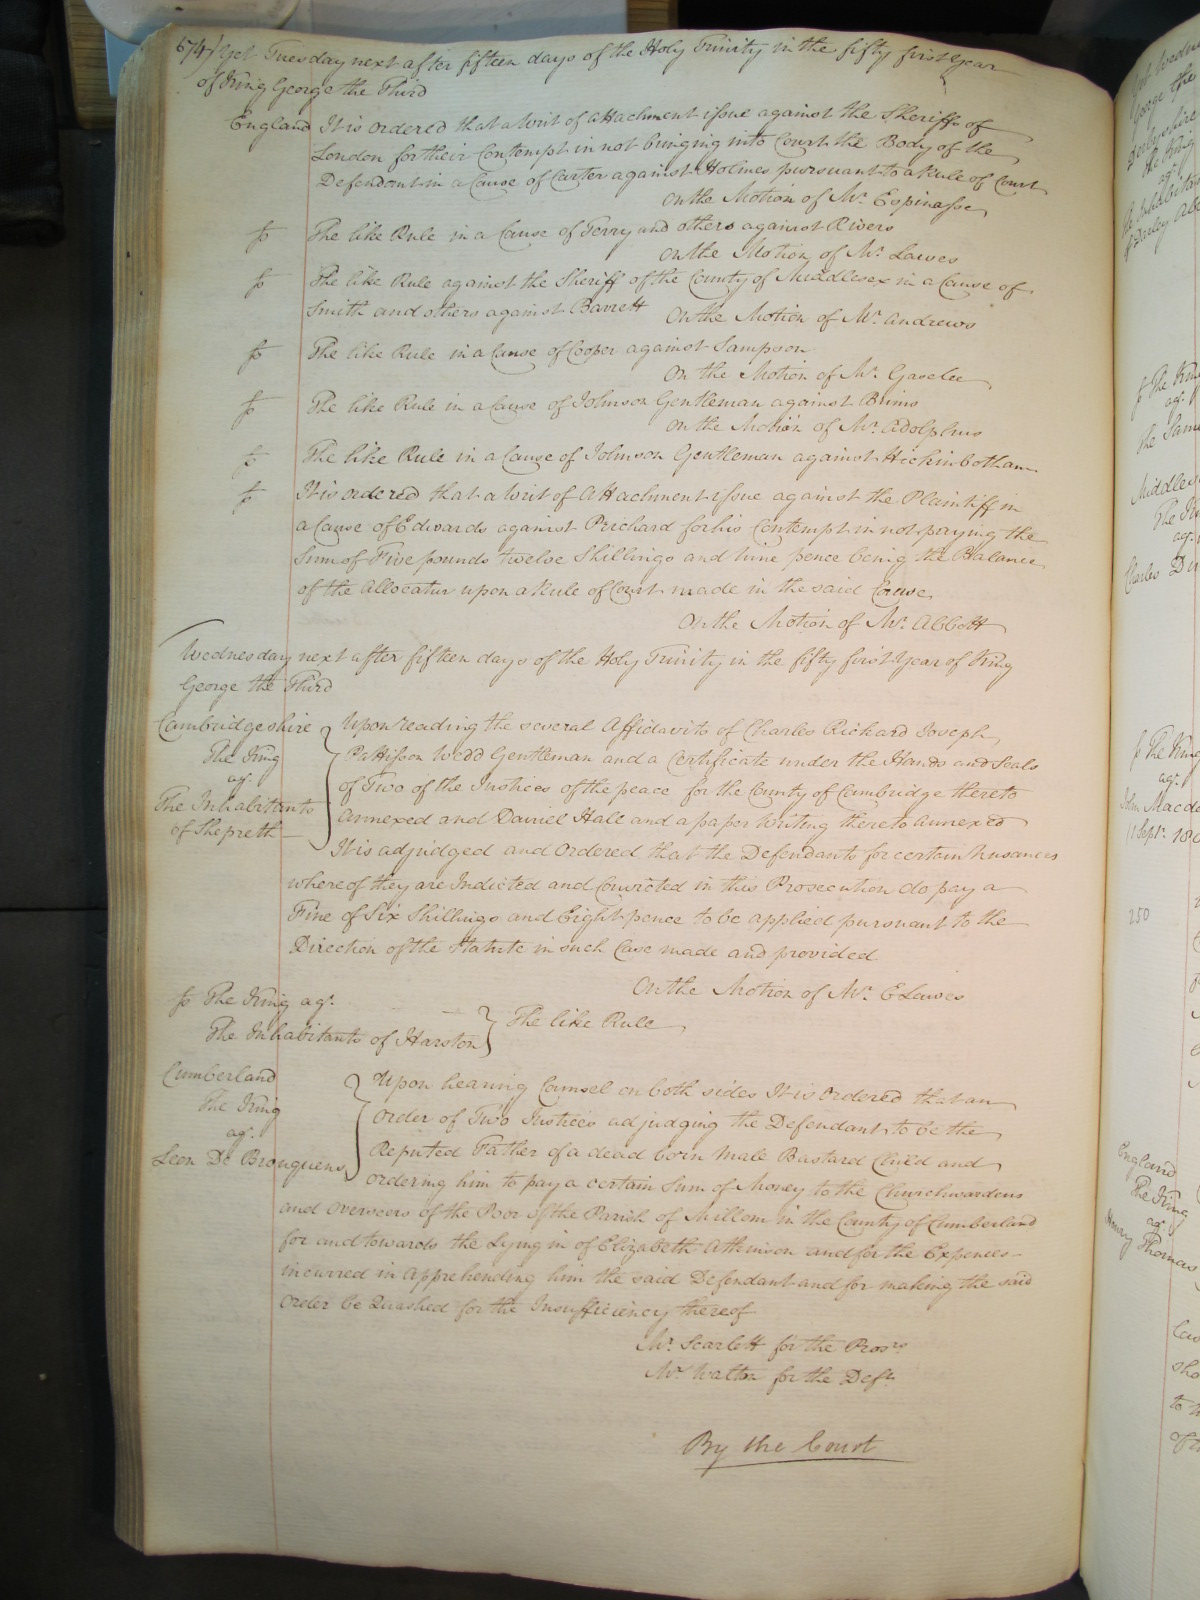 674/ Yet Tuesday next after fifteen days of the Holy Trinity in the fifty first Year
of King George the Third
England It is ordered that a Writ of Attachment issue against the Sheriffs of
London for their Contempt in not bringing into Court the Body of the
Defendant in a Cause of Carter against Holmes pursuant to a Rule of Court
On the Motion of Mr. Espinasse
fo The like Rule in a Cause of Terry and others against Rivers
On the Motion of Mr Lawes
fo The like Rule against the Sheriff of the County of Middlesex in a Cause of
Smith and others against Barrett On the Motion of Mr. Andrews
fo The like Rule in a Cause of Cooper against Sampson
On the Motion of Mr. Gaselee
fo The like Rule in a Cause of Johnson Gentleman against Brims
On the Motion of Mr. Adolphus
fo The like Rule in a Cause of Johnson Gentleman against Hickinbotham
fo It is ordered that a Writ of Attachment issue against the Plaintiff in
a Cause of Edwards against Prichard for his Contempt in not paying the
Sum of Five pounds twelve Shillings and nine pence being the Balance
of the Allocatur upon a Rule of Court made in the said Cause
On the Motion of Mr. Abbott
Wednesday next after fifteen days of the Holy Trinity in the fifty first Year of King
George the Third
Cambridgeshire
The King
agt.
The Inhabitants
of Shepreth
Upon reading the several Affidavits of Charles Richard Joseph
Pattisson Wedd Gentleman and a Certificate under the Hands and Seals
of Two of the Justices of the peace for the County of Cambridge thereto
Annexed and Daniel Hale and a paper Writing thereto annexed
It is adjudged and Ordered that the Defendants for certain Nusances
whereof they are Indicted and Convicted in this Prosecution do pay a
Fine of Six Shillings and Eight pence to be applied pursuant to the
Direction of the Statute in such Case made and provided
On the Motion of Mr. E Lawes
fo The King agt.
The Inhabitants of Harston
The like Rule
Cumberland
The King
agt.
Leon De Brouquens
Upon hearing Counsel on both sides It is Ordered that an
Order of Two Justices adjudging the Defendant to be the
Reputed Father of a dead born Male Bastard Child and
ordering him to pay a certain Sum of Money to the Churchwardens
and Overseers of the Poor of the Parish of Millom in the County of Cumberland
for and towards the Lying in of Elizabeth Atkinson and for the Expences
incurred in Apprehending him the said Defendant and for making the said
Order be Quashed for the Insufficiency thereof
Mr. Scarlett for the Prosrs
Mr Walton for the Deft.
By the Court